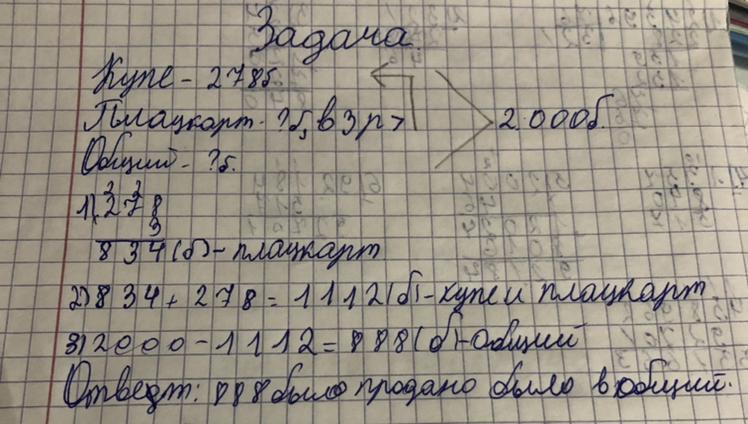 Задача.
Купе - 278б.
Плацкарт - ?б, в 3 р > 2.000б.
Общий - ?б.
2 2
1) 278
3
834 (б) - плацкарт
2) 834 + 278 = 1112 (б) - купе и плацкарт
3) 2000 - 1112 = 888 (б) - общий
Ответ: 888 было продано было в общий.